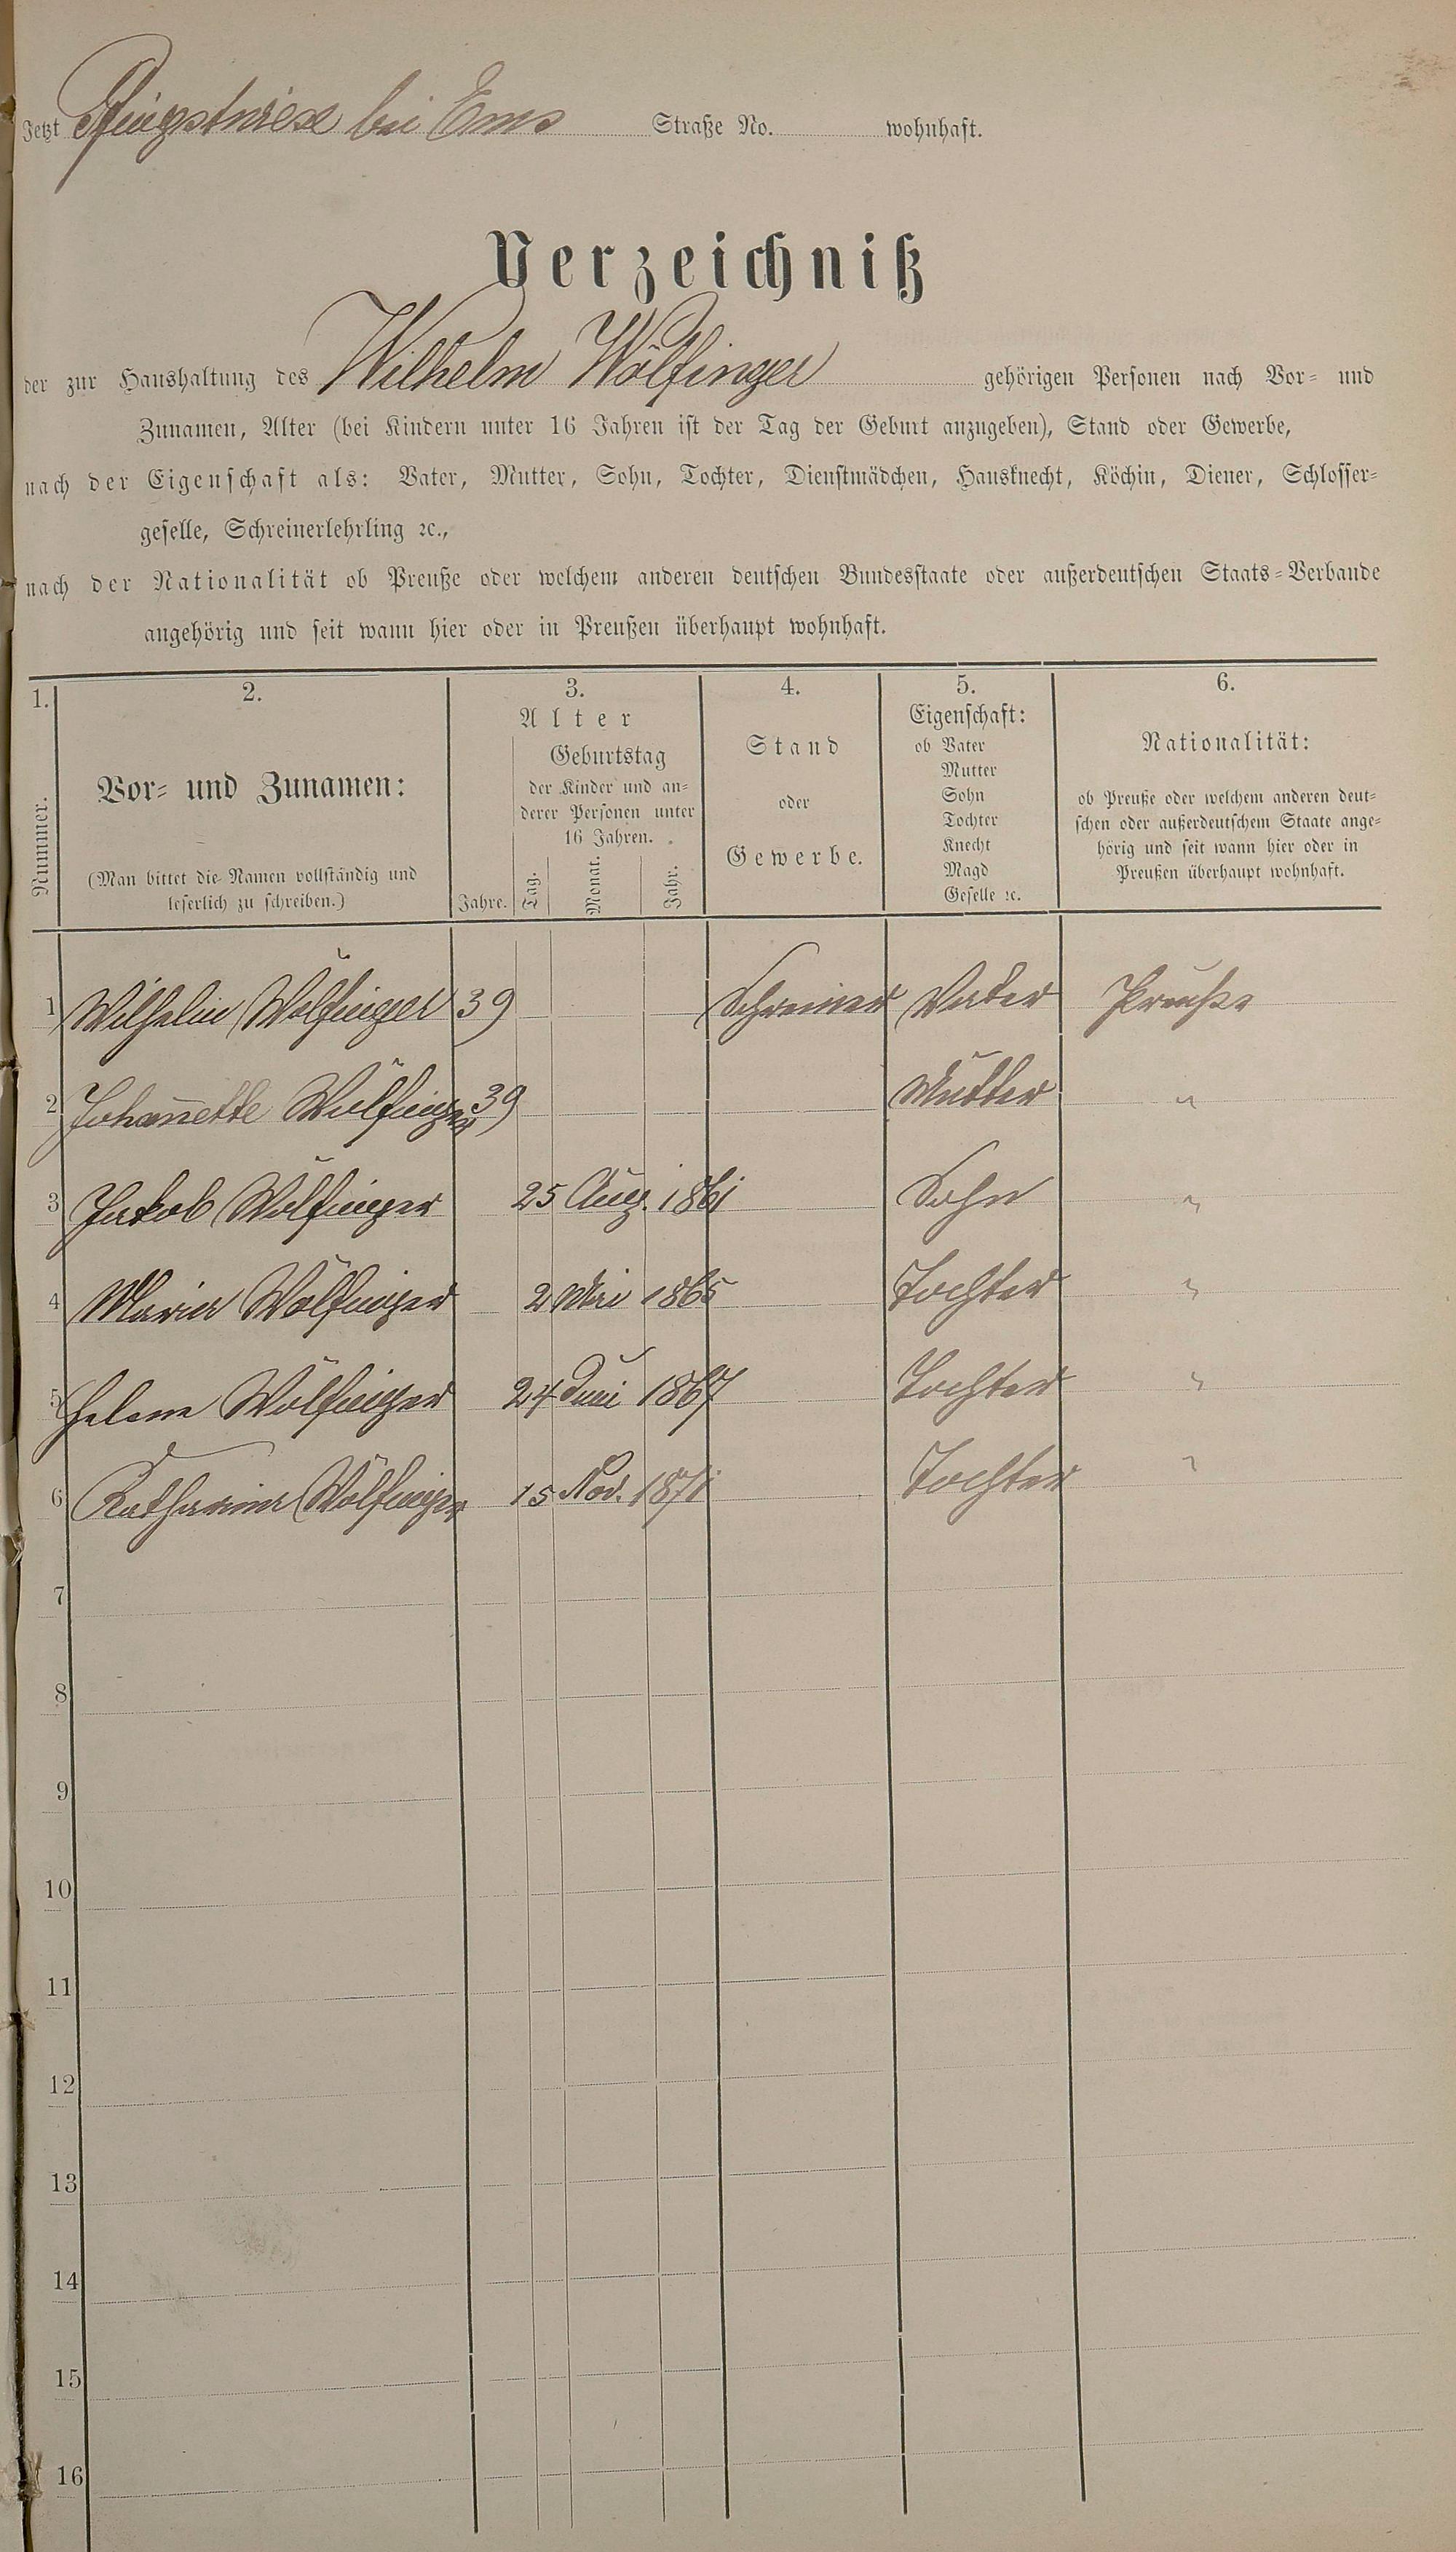 Jetzt Pfingstwiese bei Ems Straße No. wohnhaft.
Verzeichniß
der zur Haushaltung des Wilhelm Wölfinger gehörigen Personen nach Vor- und
Zunamen, Alter (bei Kindern unter 16 Jahren ist der Tag der Geburt anzugeben), Stand oder Gewerbe,
nach der Eigenschaft als: Vater, Mutter, Sohn, Tochter, Dienstmädchen, Hausknecht, Köchin, Diener, Schlosser-
geselle, Schreinerlehrling ꝛc.,
nach der Nationalität ob Preuße oder welchem anderen deutschen Bundesstaate oder außerdeutschen Staats-Verbande
angehörig und seit wann hier oder in Preußen überhaupt wohnhaft.
1. 2. 3. 4. 5. 6.
Nummer.
Vor- und Zunamen:
(Man bittet die Namen vollständig und
leserlich zu schreiben.)
Alter
Jahre.
Geburtstag
der Kinder und an-
derer Personen unter
16 Jahren.
Tag. Monat. Jahr.
Stand
oder
Gewerbe.
Eigenschaft:
ob Vater
Mutter
Sohn
Tochter
Knecht
Magd
Geselle ꝛc.
Nationalität:
ob Preuße oder welchem anderen deut-
schen oder außerdeutschem Staate ange-
hörig und seit wann hier oder in
Preußen überhaupt wohnhaft.
1 Wilhelm Wölfinger 39 Schreiner Vater Preuße
2 Johannette Wölfinger 39 Mutter "
3 Jakob Wölfinger 25 Aug. 1861 Sohn "
4 Maria Wölfinger 2 Mai 1865 Tochter "
5 Helena Wölfinger 24 Juni 1867 Tochter "
6 Katharina Wölfinger 15 Nov. 1871 Tochter "
7
8
9
10
11
12
13
14
15
16